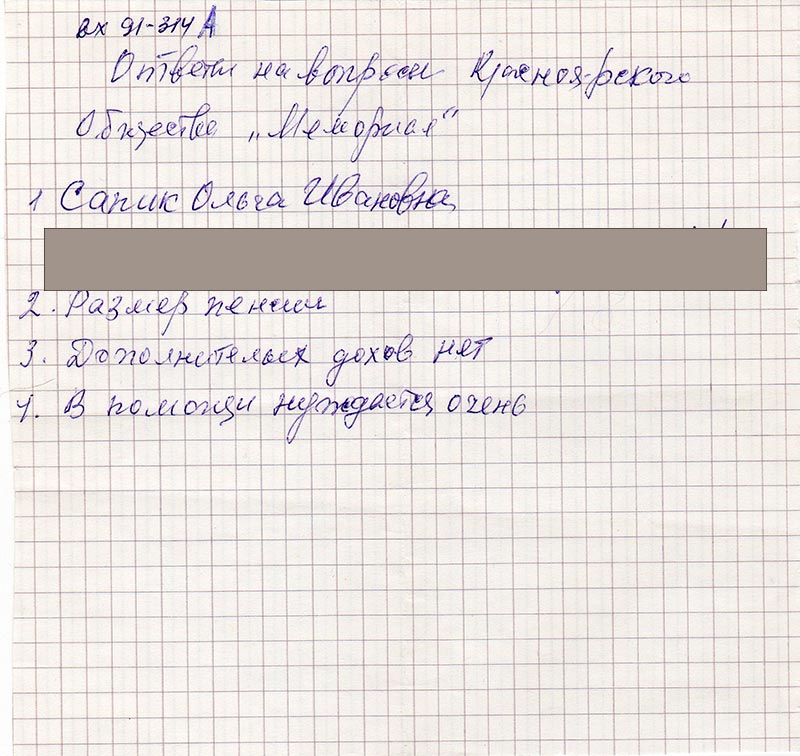 вх 91-314 А
Ответы на вопросы Красноярского
Общества „Мемориал“
1 Сапик Ольга Ивановна
2. Размер пенсии
3. Дополнительых дохов нет
4. В помощи нуждается очень